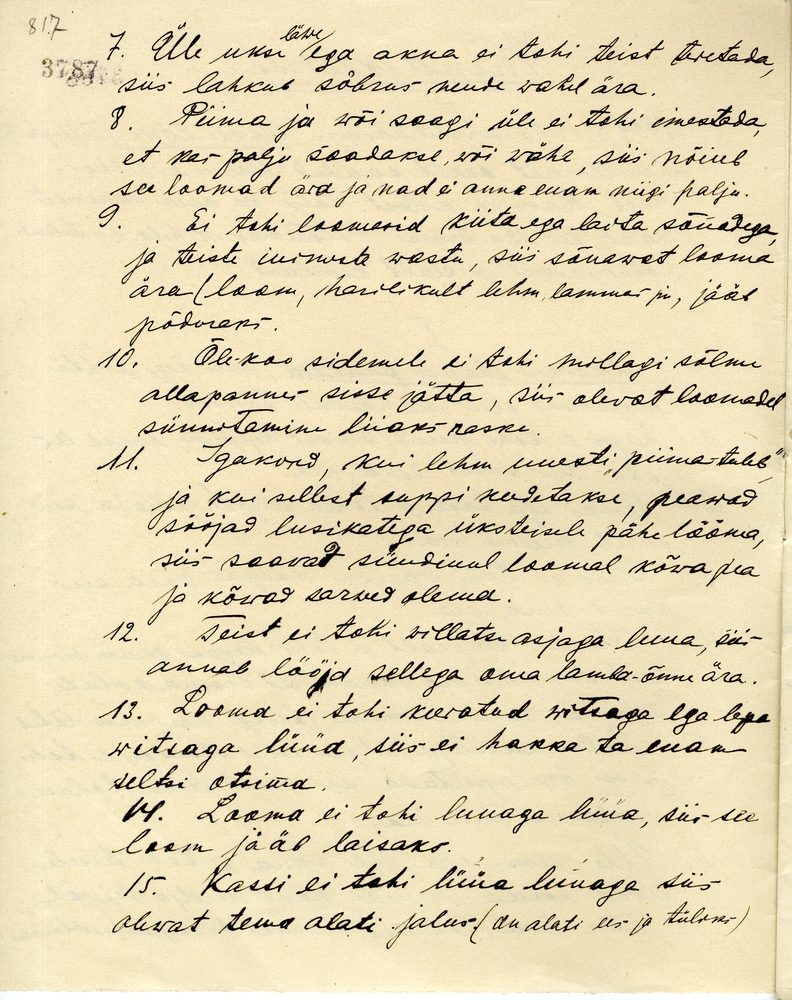 817
3787
7. Ülle ukse läwe ega akna ei tohi teist teretada,
siis lahkub sõbrus nende wahel ära.
8. Piima ja wõi saagi üle ei tohi imestada,
et kas palju saadakse, wõi wähe, siis nõiub
see loomad ära ja nad ei anna enam niigi palju.
9. Ei tohi loomasid kiita ega laita sõnadega,
ja teiste inimeste wastu, siis sõnawat looma
ära (loom, harilikult lehm, lammas jn, jääb
põduraks.
10. Õle-koo sidemele ei tohi millagi sõlme
allapannes sisse jätta, siis olewat loomadel
sünnitamine liiaks raske.
11. Igakord, kui lehm uuesti „piima-tuleb"
ja kui sellest suppi keedetakse, peawad
sööjad lusikatega üksteisele pähe lööma,
siis saawad sündinul loomal kõwa pea
ja kõwad sarwed olema.
12. Teist ei tohi willatse asjaga luua, siis
annab lööja sellega oma lamba-õnne ära.
13. Looma ei tohi kooratud witsaga ega lepa
witsaga lüüa, siis ei hakka ta enam
seltsi otsima.
14. Looma ei tohi luuaga lüüa, siis see
loom jääb laisaks.
15. Kassi ei tohi lüüa luuaga siis
olewat tema alati jalus (on alati ees ja tüliks)